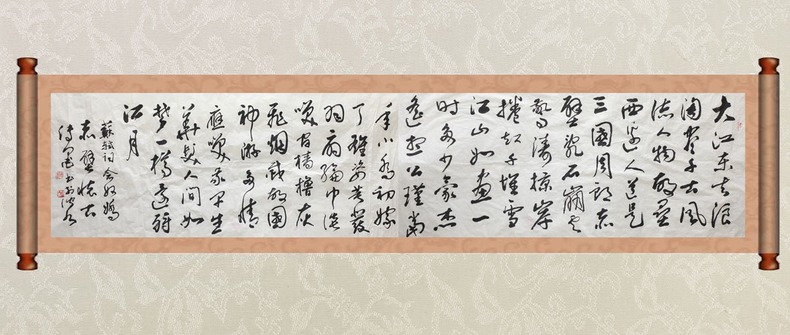 大江东去浪
淘尽千古风
流人物故垒
西边人道是
三國周郎赤
壁乱石崩云
驚涛掠岸
捲起千堆雪
江山如画一
时多少豪杰
遥想公瑾当
年小乔初嫁
了雄姿英发
羽扇纶巾谈
笑间檣櫓灰
飛烟灭故國
神游多情
應笑我早生
華髮人间如
梦一樽还酹
江月
蘇軾词念奴嬌
赤壁怀古